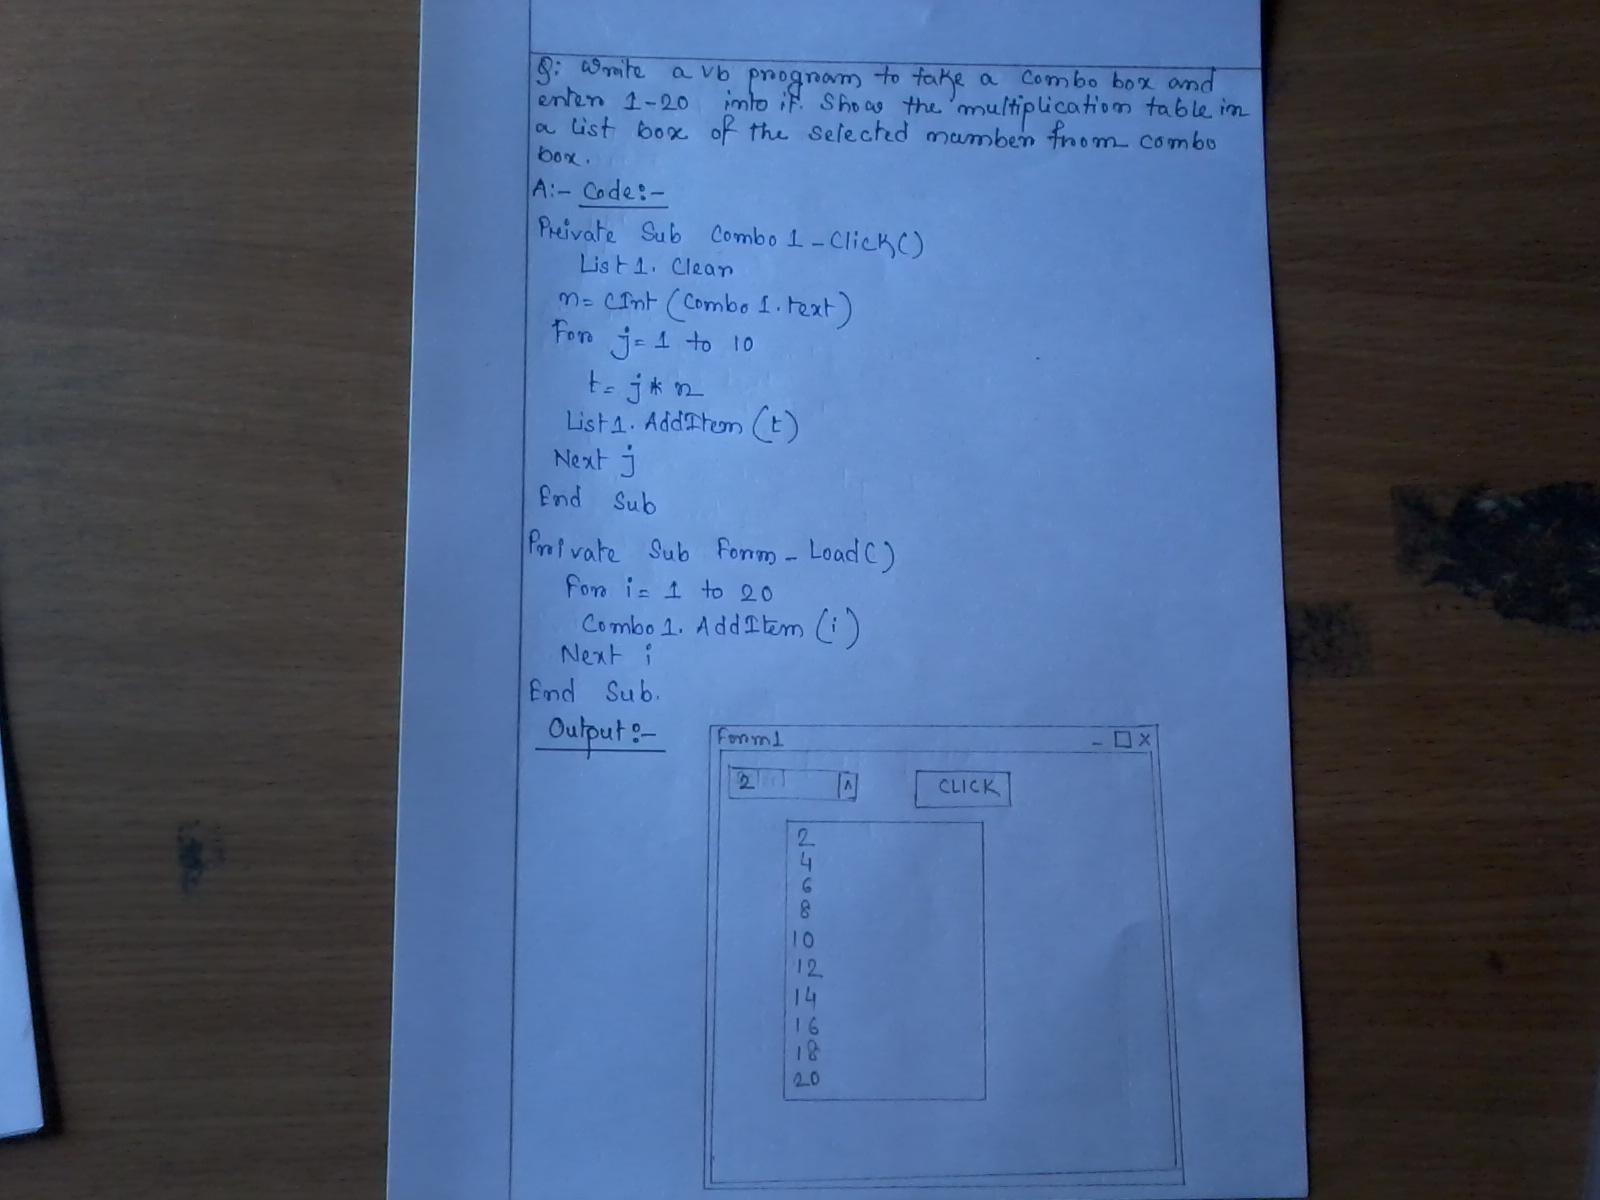 Q: Write a vb program to take a combo box and
enter 1-20 into it. Show the multiplication table in
a list box of the selected number from combo
box.
A:- Code:-
Private Sub Combo1_Click()
List1. Clear
n= CInt (Combo1.text)
For j= 1 to 10
t= j * n
List1. AddItem (t)
Next j
End Sub
Private Sub Form_Load()
For i= 1 to 20
Combo1. AddItem (i)
Next i
End Sub.
Output:-
Form1 - □ X
2 ^ CLICK
2
4
6
8
10
12
14
16
18
20